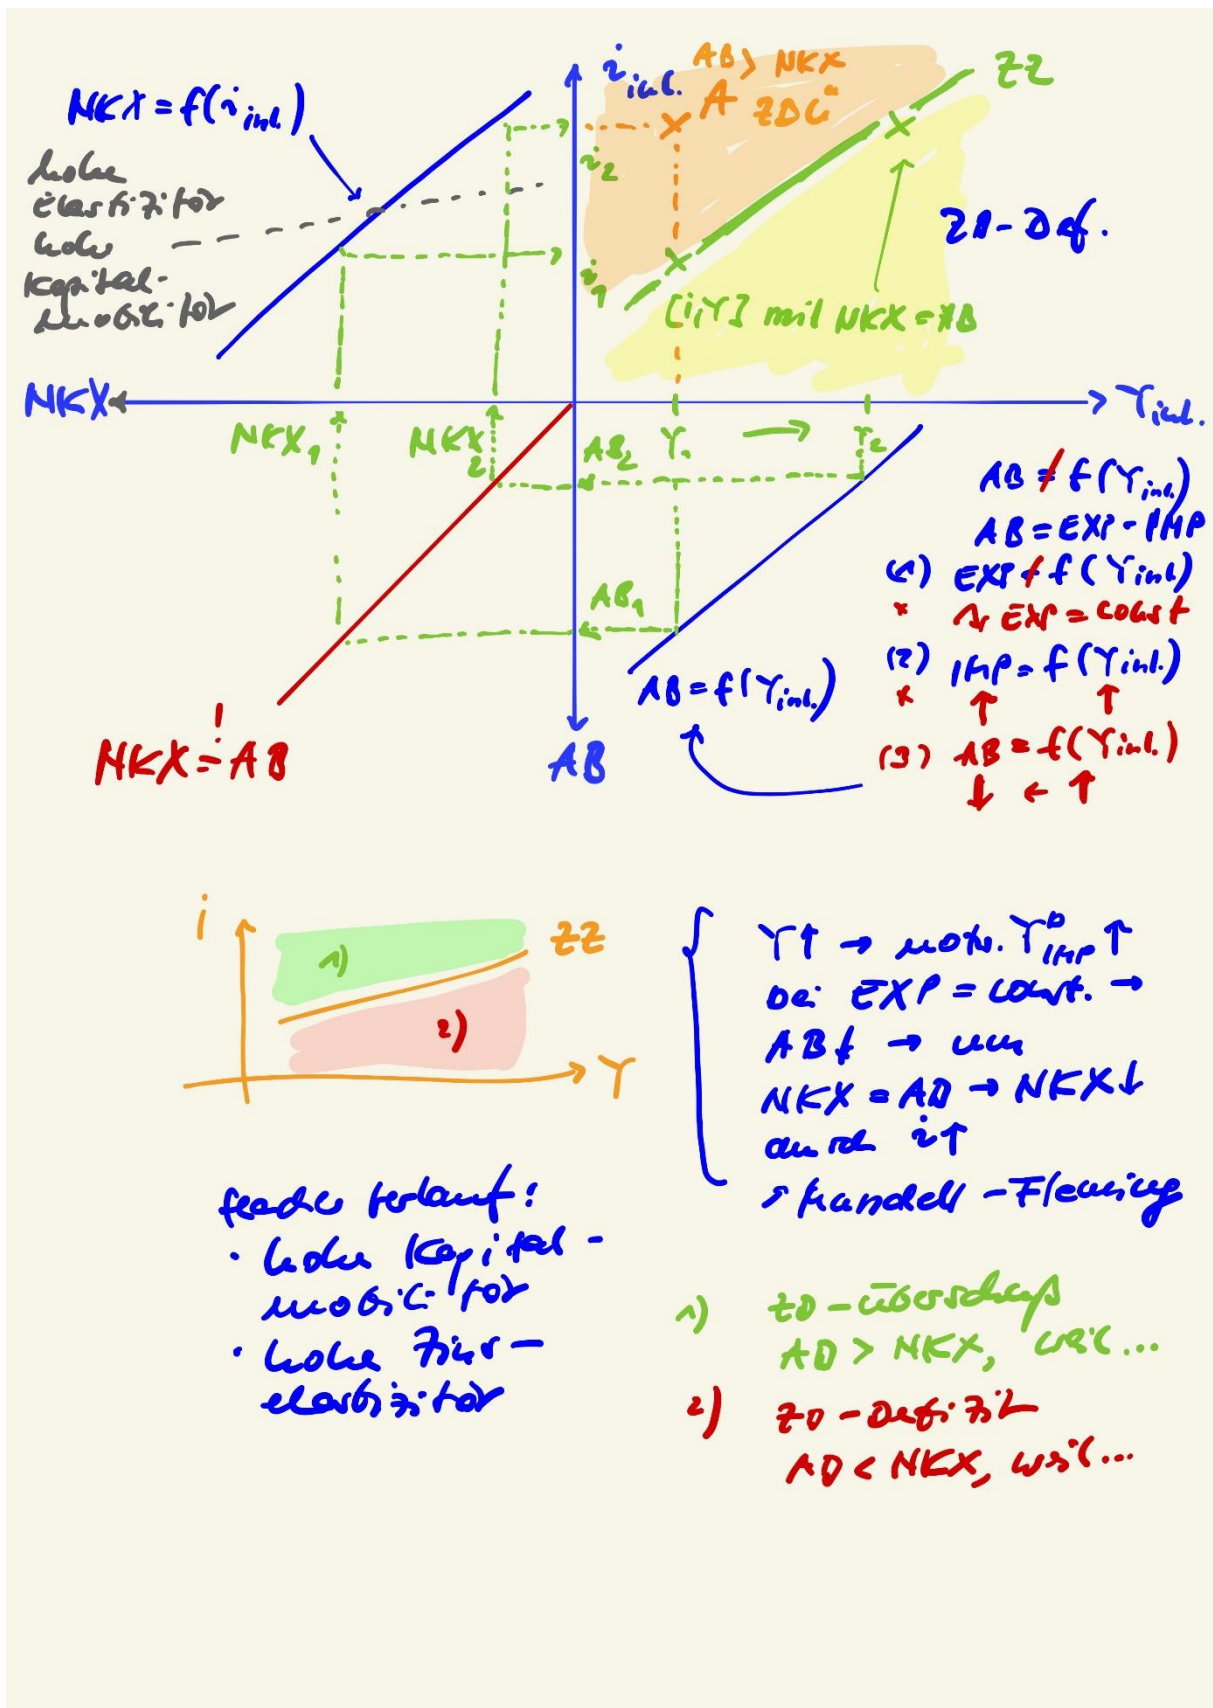 NKX = f(i inl.)
hohe
Elastizität
hohe
Kapital-
mobilität
i inl.
AB > NKX
A ZBÜ
ZZ
i2
i1
ZB-Def.
[i,Y] mit NKX = AB
NKX
Y inl.
NKX1
NKX2
AB2
Y1
→
Y2
AB1
AB = f(Y inl.)
NKX = AB
!
AB
AB ≠ f(Y inl.)
AB = EXP - IMP
(1) EXP ≠ f(Y inl)
* EXP = const
(2) IMP = f(Y inl.)
* ↑ ↑
(3) AB = f(Y inl.)
↓ ← ↑
i
1)
2)
ZZ
Y
Y↑ → notw. Y IMP ↑
bei EXP = const. →
AB↓ → um
NKX = AB → NKX↓
durch i↑
Mundell-Fleming
flacher Verlauf:
• hohe Kapital-
mobilität
• hohe Zins-
elastizität
1) ZB-Überschuß
AB > NKX, weil...
2) ZB-Defizit
AB < NKX, weil...